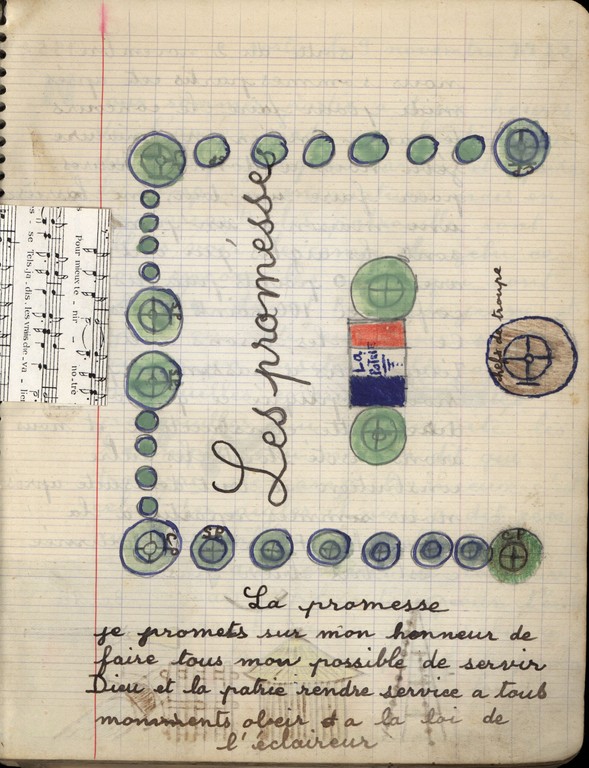 Pour mieux te - nir
no - tre
- se Tels ja - dis les vrais che - va - liers
Les promesses
La
Patrie
CP
SP
SP
SP
CP
SP
CP
chefs de troupe
La promesse
je promets sur mon honneur de
faire tous mon possible de servir
Dieu et la patrie rendre service a tous
monuments obeir a la loi de
l'éclaireur